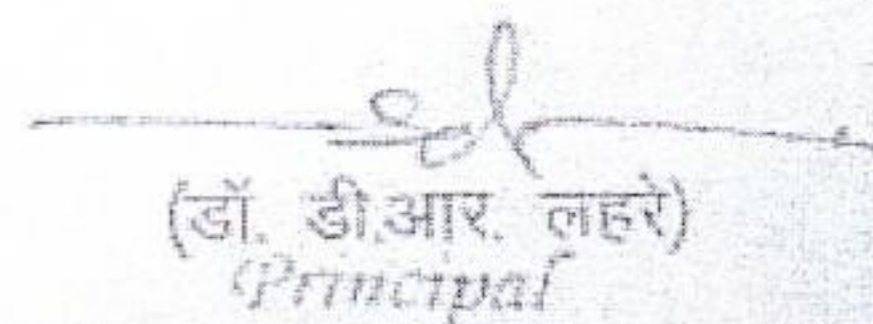 (डॉ. डी.आर. लहरे)
Principal